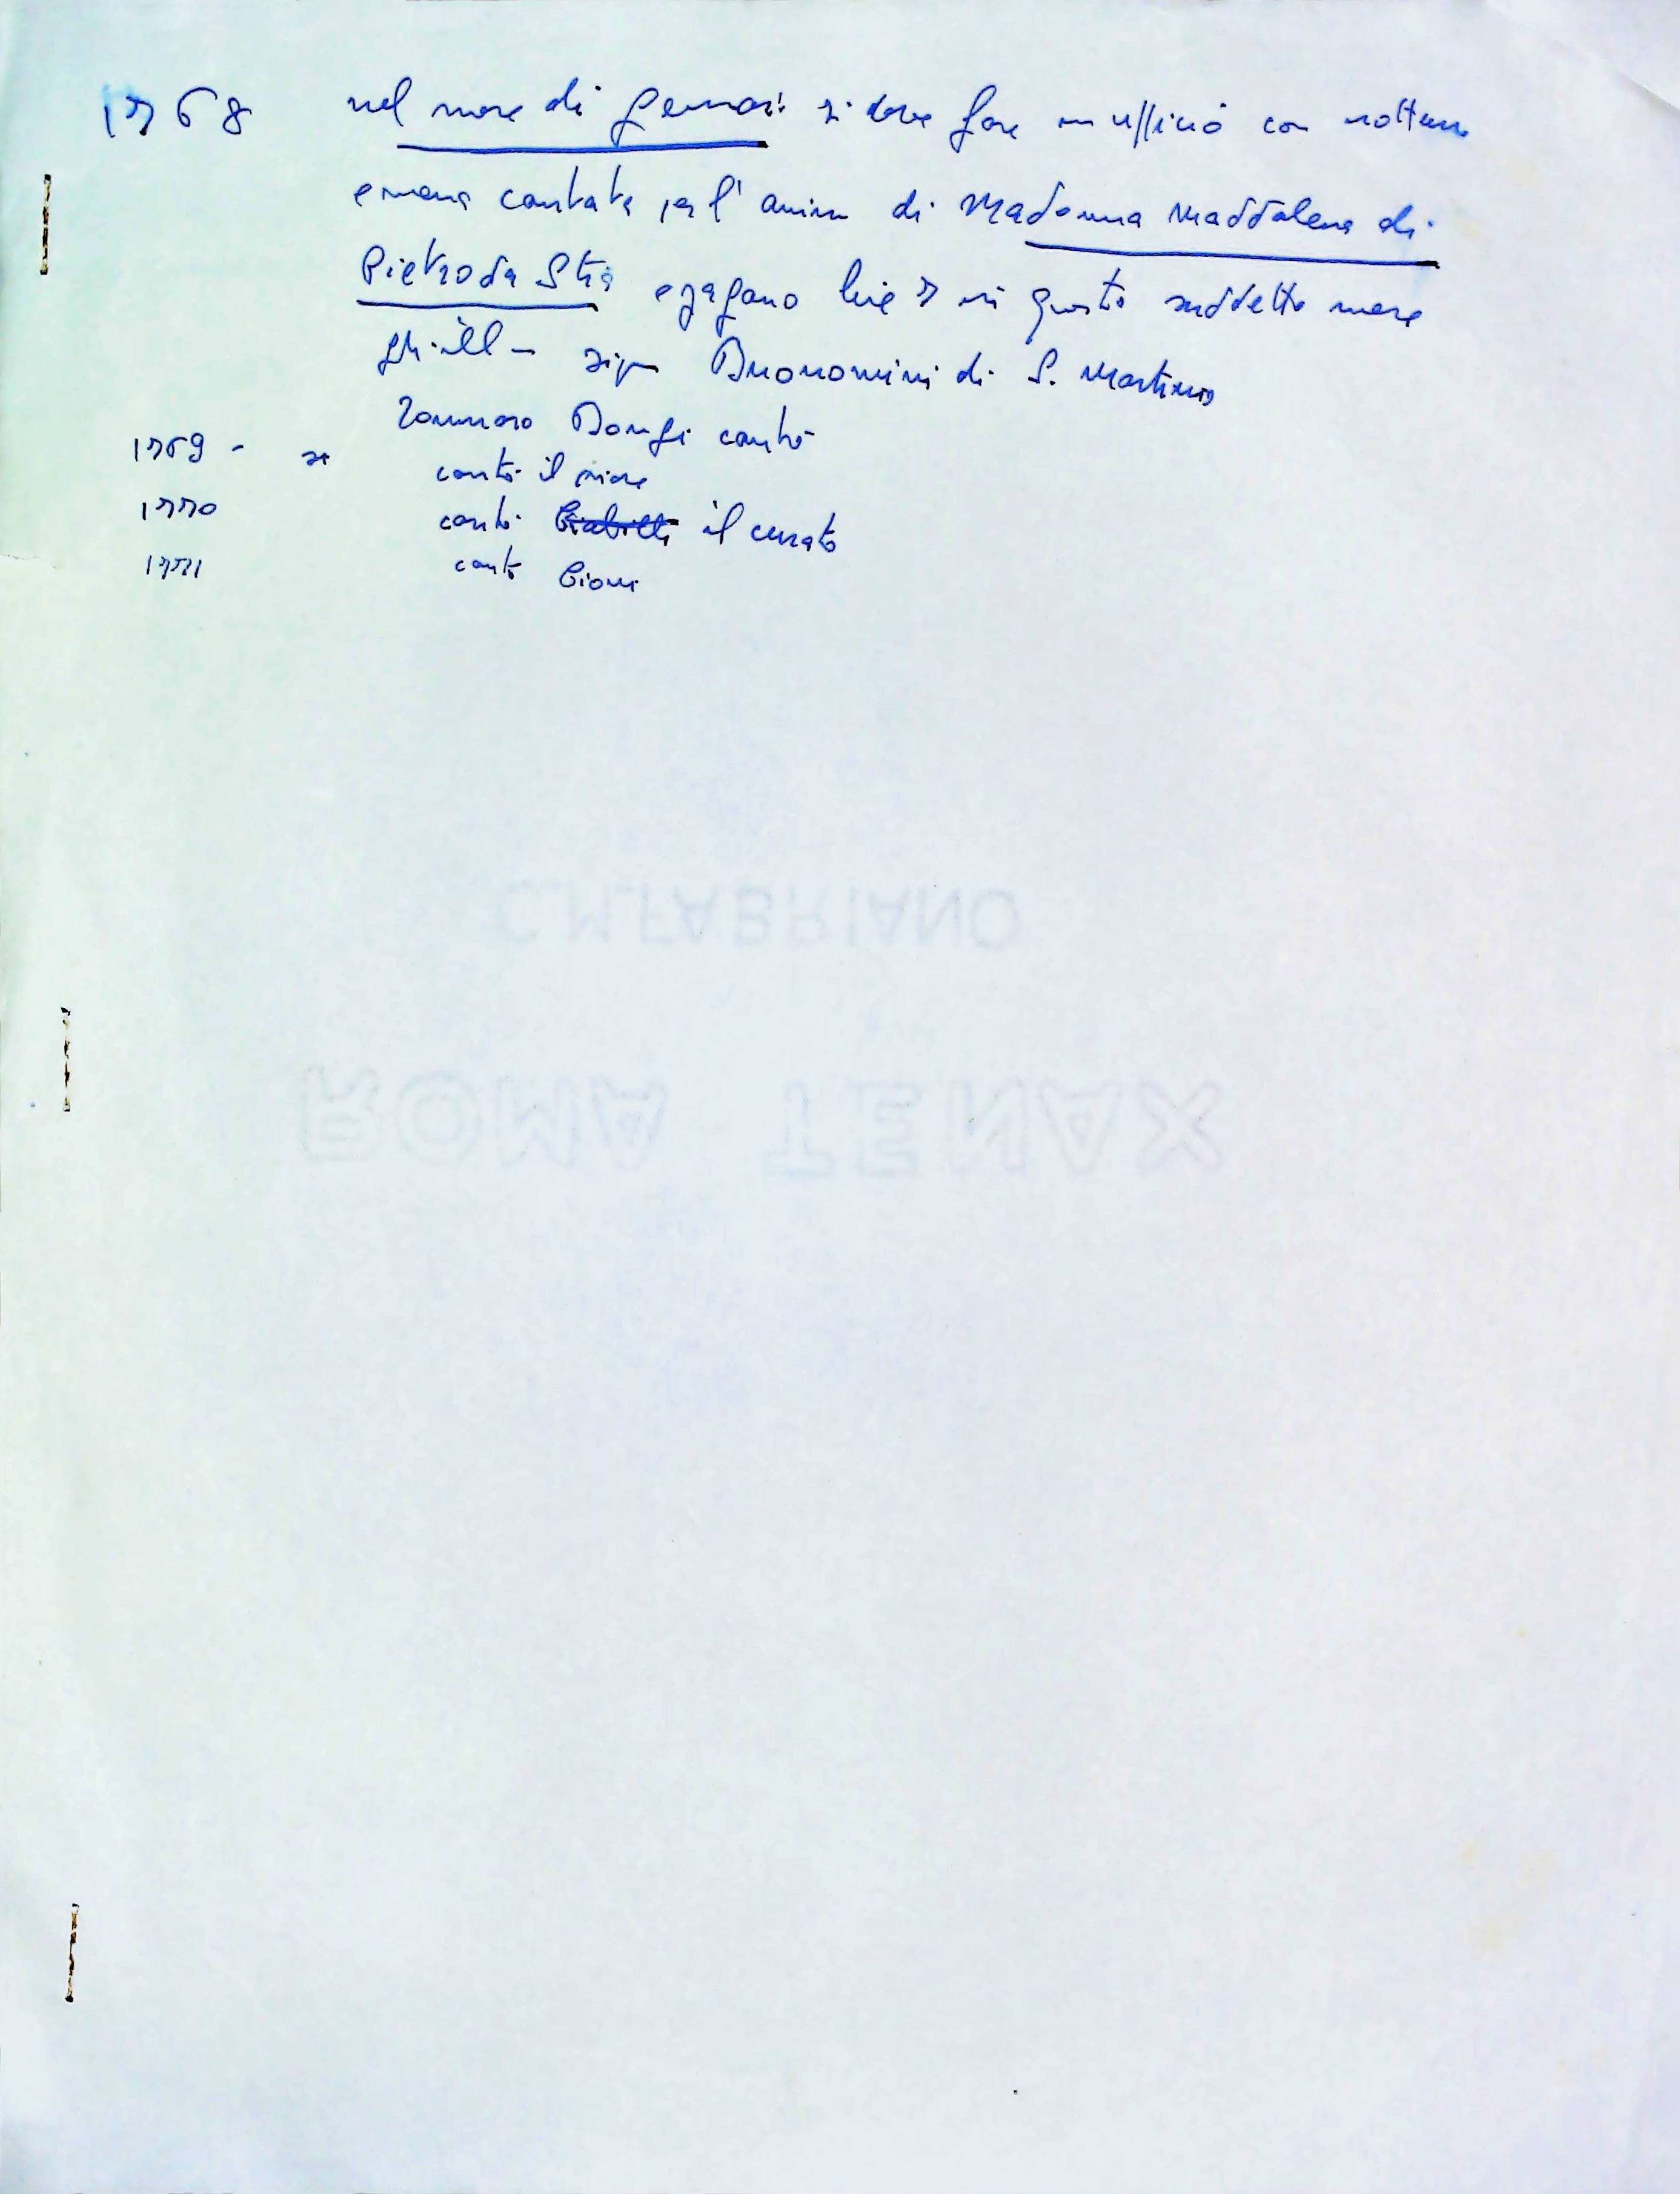 1768 nel mese di Gennaio si deve fare un uffizio con notturno
e messa cantata per l'anima di Madonna Maddalena di
Pietro da Stia e pagano lire 7 in questo suddetto mese
gli ill– sig– Buonomini di S. Martino
Tommaso Dongi cantò
1769 – cantò il priore
1770 cantò il curato
1771 cantò Cioni
C.M.FABRIANO
ROMA TENAX